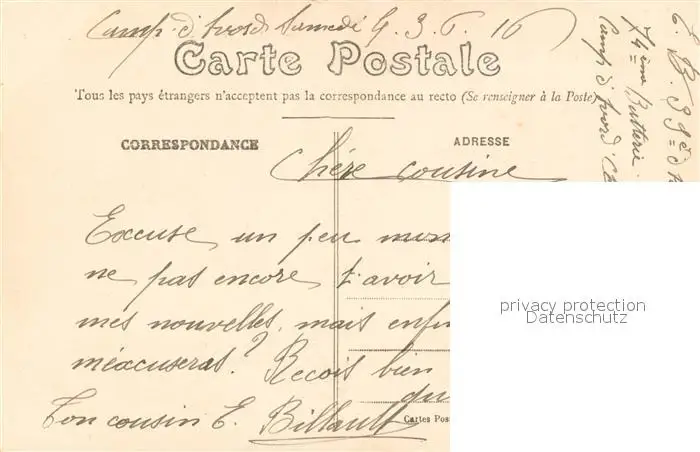 Camp d'Avord Samedi 4. 3. 6. 16
Carte Postale
Tous les pays étrangers n'acceptent pas la correspondance au recto (Se renseigner à la Poste)
CORRESPONDANCE
ADRESSE
Chére cousine
Excuse un peu mon
ne pas encore t'avoir
mes nouvelles, mais enfin
m'éxcuseras? Recois bien
du
Ton cousin E. Billault
Cartes Pos
E. B. 39è d'
74ème Batterie
Camp d'Avord
privacy protection
Datenschutz